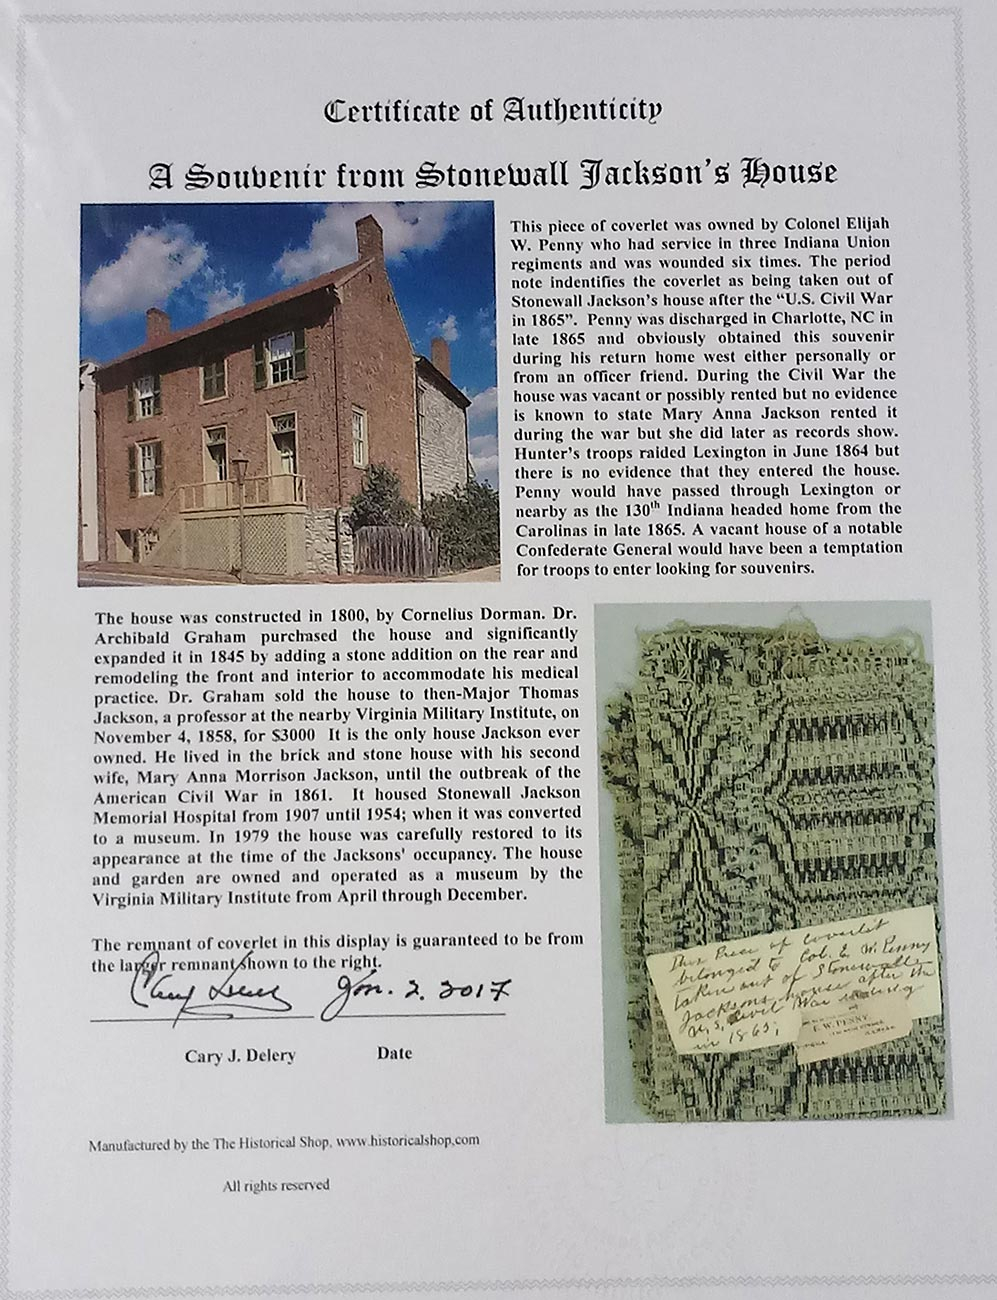 Certificate of Authenticity
A Souvenir from Stonewall Jackson's House
This piece of coverlet was owned by Colonel Elijah
W. Penny who had service in three Indiana Union
regiments and was wounded six times. The period
note indentifies the coverlet as being taken out of
Stonewall Jackson's house after the “U.S. Civil War
in 1865”. Penny was discharged in Charlotte, NC in
late 1865 and obviously obtained this souvenir
during his return home west either personally or
from an officer friend. During the Civil War the
house was vacant or possibly rented but no evidence
is known to state Mary Anna Jackson rented it
during the war but she did later as records show.
Hunter's troops raided Lexington in June 1864 but
there is no evidence that they entered the house.
Penny would have passed through Lexington or
nearby as the 130th Indiana headed home from the
Carolinas in late 1865. A vacant house of a notable
Confederate General would have been a temptation
for troops to enter looking for souvenirs.
The house was constructed in 1800, by Cornelius Dorman. Dr.
Archibald Graham purchased the house and significantly
expanded it in 1845 by adding a stone addition on the rear and
remodeling the front and interior to accommodate his medical
practice. Dr. Graham sold the house to then-Major Thomas
Jackson, a professor at the nearby Virginia Military Institute, on
November 4, 1858, for $3000 It is the only house Jackson ever
owned. He lived in the brick and stone house with his second
wife, Mary Anna Morrison Jackson, until the outbreak of the
American Civil War in 1861. It housed Stonewall Jackson
Memorial Hospital from 1907 until 1954; when it was converted
to a museum. In 1979 the house was carefully restored to its
appearance at the time of the Jacksons' occupancy. The house
and garden are owned and operated as a museum by the
Virginia Military Institute from April through December.
The remnant of coverlet in this display is guaranteed to be from
the larger remnant shown to the right.
Jan. 2. 2017
Cary J. Delery Date
This Piece of Coverlet
belonged to Col. E. W. Penny
taken out of Stonewall
Jacksons house after the
U.S. Civil War
in 1865;
E. W. PENNY,
Manufactured by the The Historical Shop, www.historicalshop.com
All rights reserved